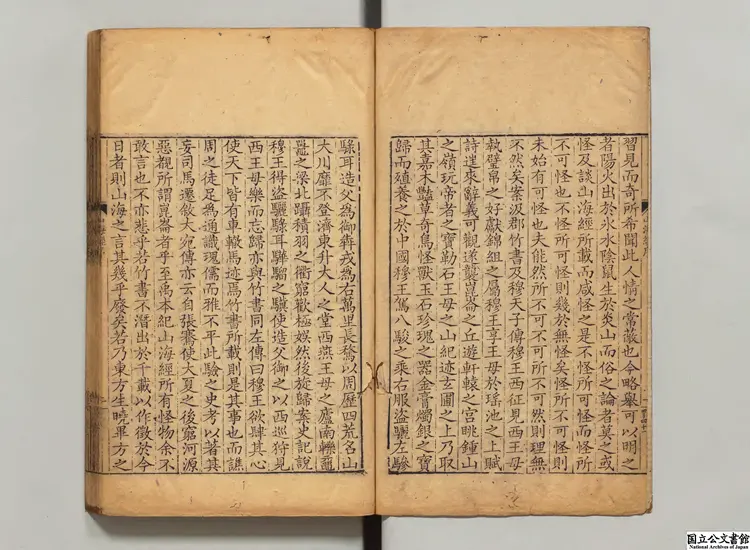 習見而奇所希聞此人情之常蔽也今略舉可以明之
者陽火出於氷水陰鼠生於炎山而俗之論者莫之或
怪及談山海經所載而咸怪之是不怪所可怪而怪所
不可怪也不怪所可怪則幾於無怪矣怪所不可怪則
未始有可怪也夫能然所不可不可所不可然則理無
不然矣案汲郡竹書及穆天子傳穆王西征見西王母
執璧帛之好獻錦組之屬穆王享王母於瑤池之上賦
詩徃來辭義可觀遂襲崑崙之丘遊軒轅之宮眺鍾山
之嶺玩帝者之寶勒石王母之山紀迹玄圃之上乃取
其嘉木豔草奇鳥怪獸玉石珍瑰之器金膏燭銀之寶
歸而殖養之於中國穆王駕八駿之乘右服盜驪左驂
騄耳造父為御犇戎為右萬里長騖以周歷四荒名山
大川靡不登濟東升大人之堂西燕王母之廬南轢黿
鼉之梁北躡積羽之衢窮歡極娛然後旋歸案史記說
穆王得盜驪騄耳驊騮之驥使造父御之以西巡狩見
西王母樂而忘歸亦與竹書同左傳曰穆王欲肆其心
使天下皆有車轍馬迹焉竹書所載則是其事也而譙
周之徒足為通識瑰儒而雅不平此驗之史考以著其
妄司馬遷敘大宛傳亦云自張騫使大夏之後窮河源
惡覩所謂崑崙者乎至禹本紀山海經所有怪物余不
敢言也不亦悲乎若竹書不潛出於千載以作徵於今
日者則山海之言其幾乎廢矣若乃東方生曉畢方之
国立公文書館
National Archives of Japan